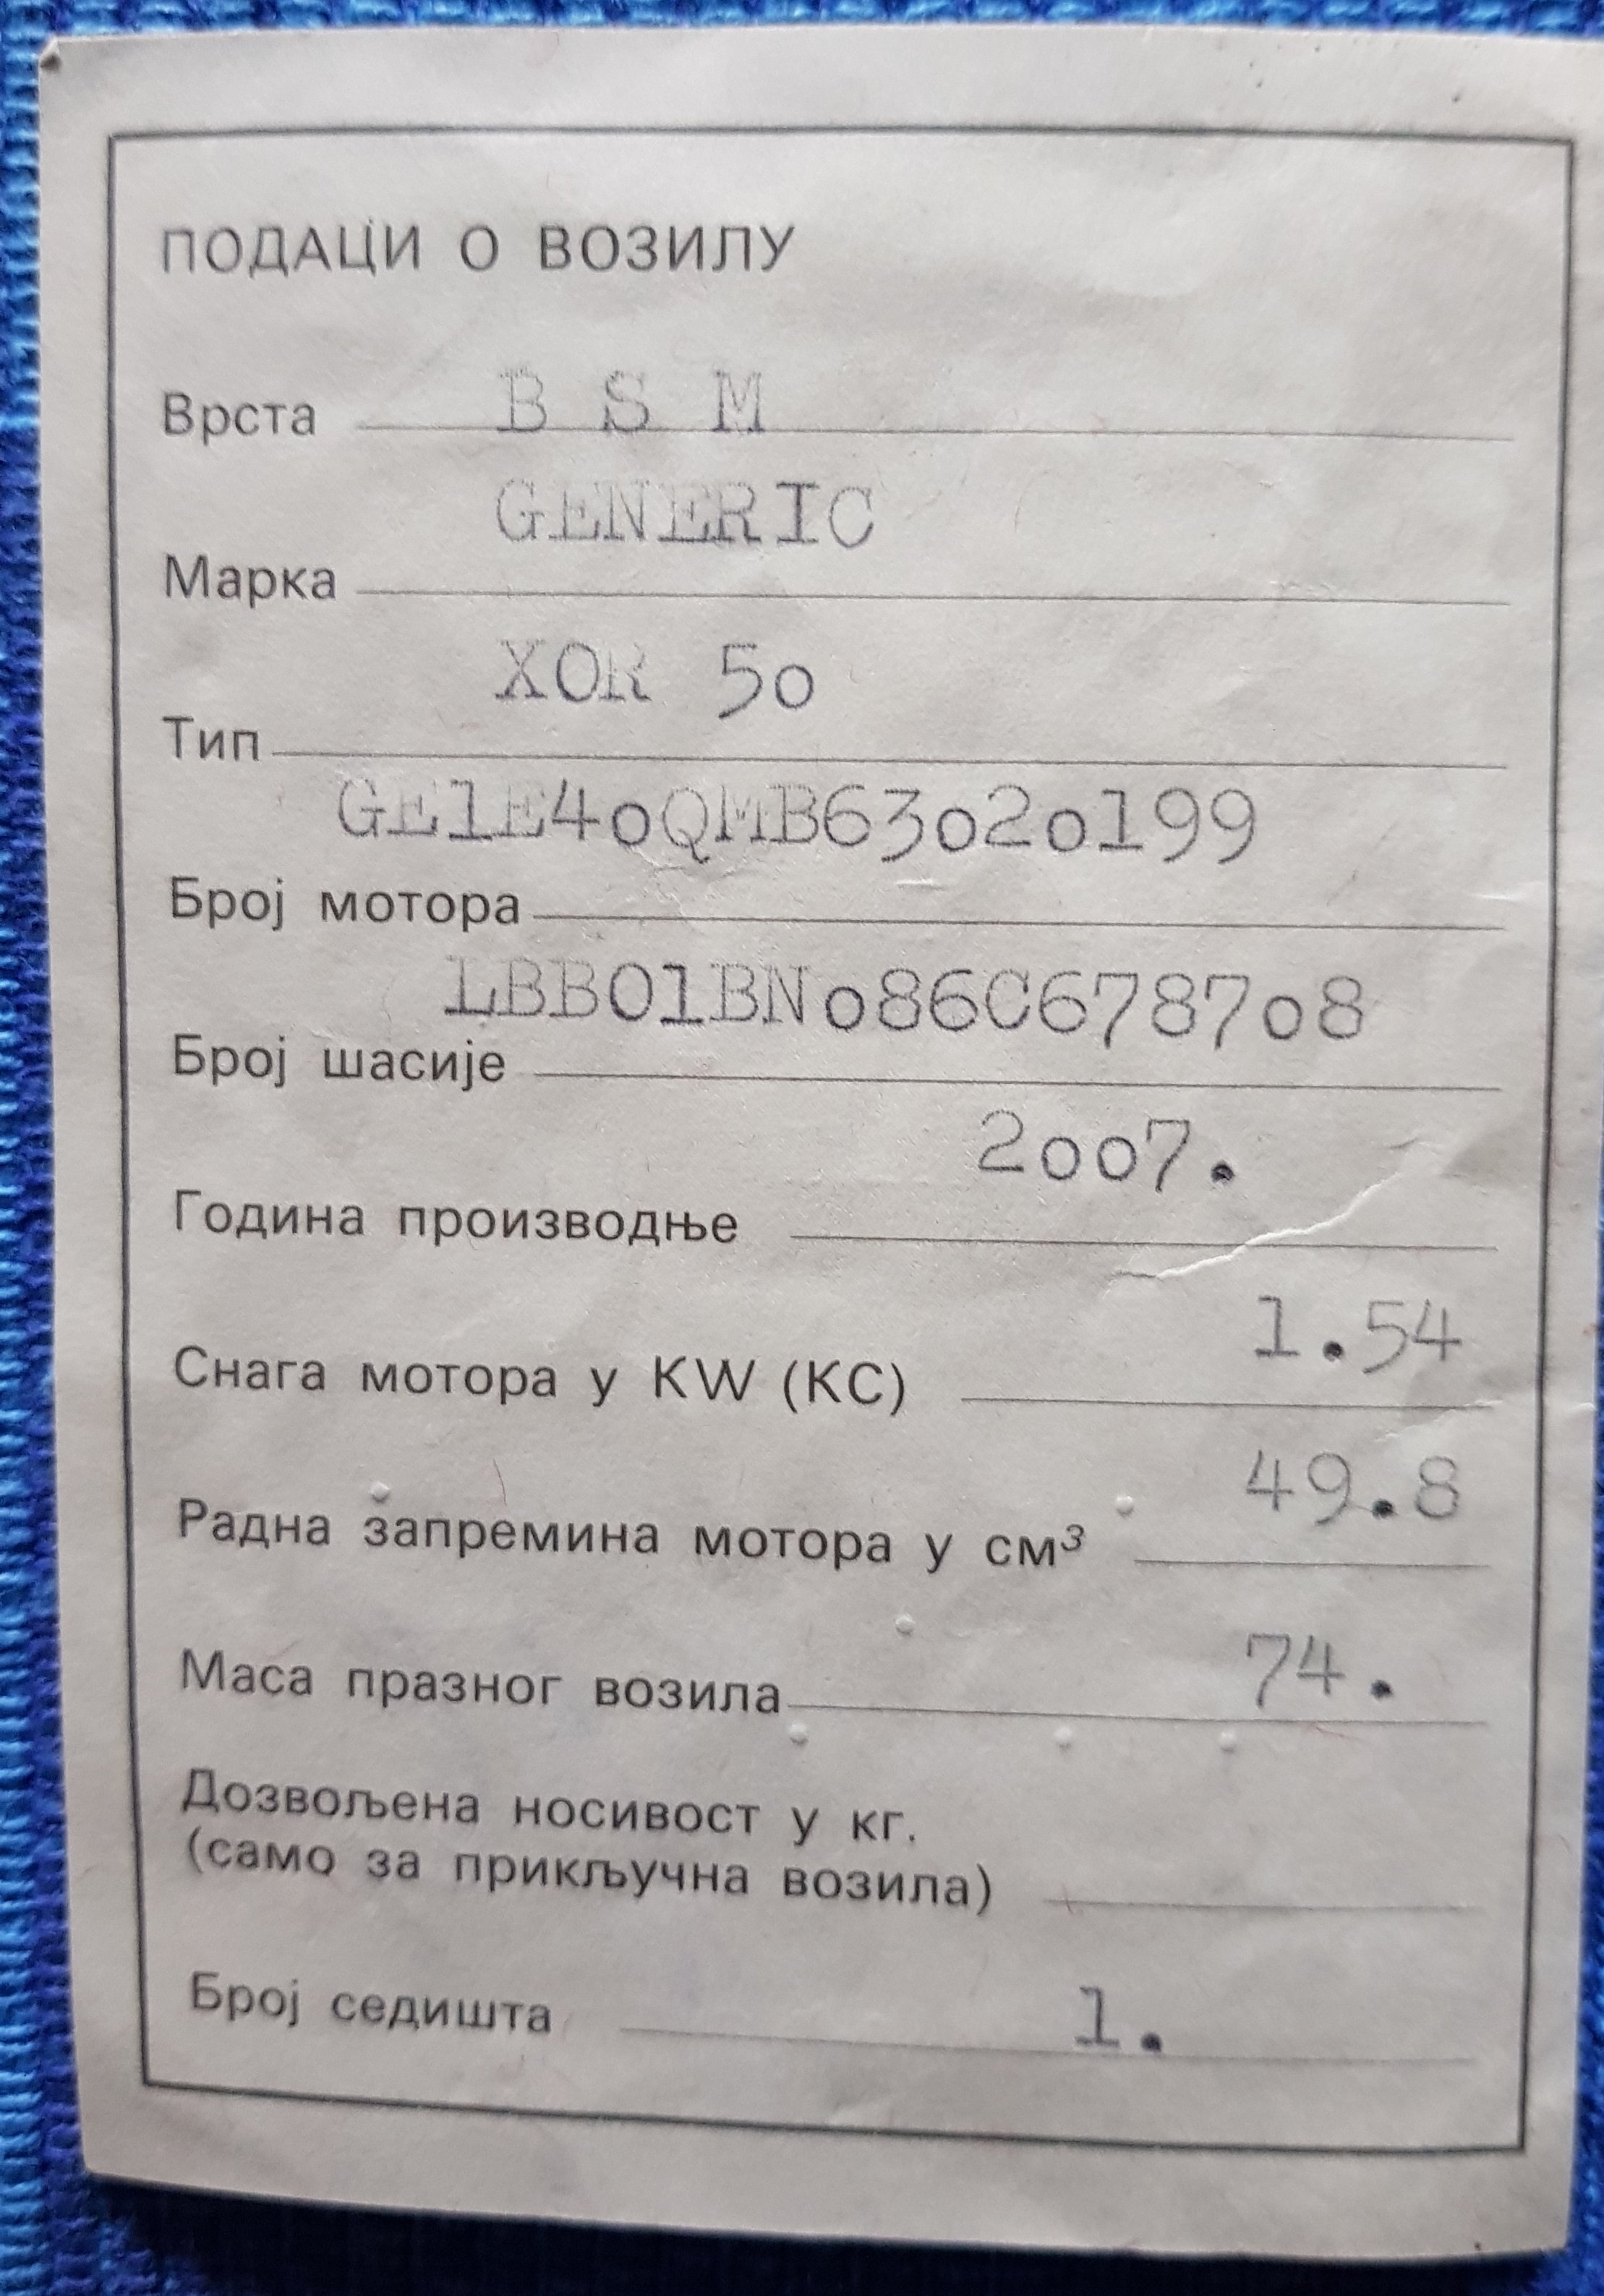 ПОДАЦИ О ВОЗИЛУ
Врста B S M
GENERIC
Марка
XOR 5o
Тип
GE1E4oQMB63o2o199
Број мотора
LBBO1BNo86C6787o8
Број шасије
2oo7.
Година производње
Снага мотора у KW (КС) 1.54
Радна запремина мотора у см³ 49.8
Маса празног возила 74.
Дозвољена носивост у кг.
(само за прикључна возила)
Број седишта 1.